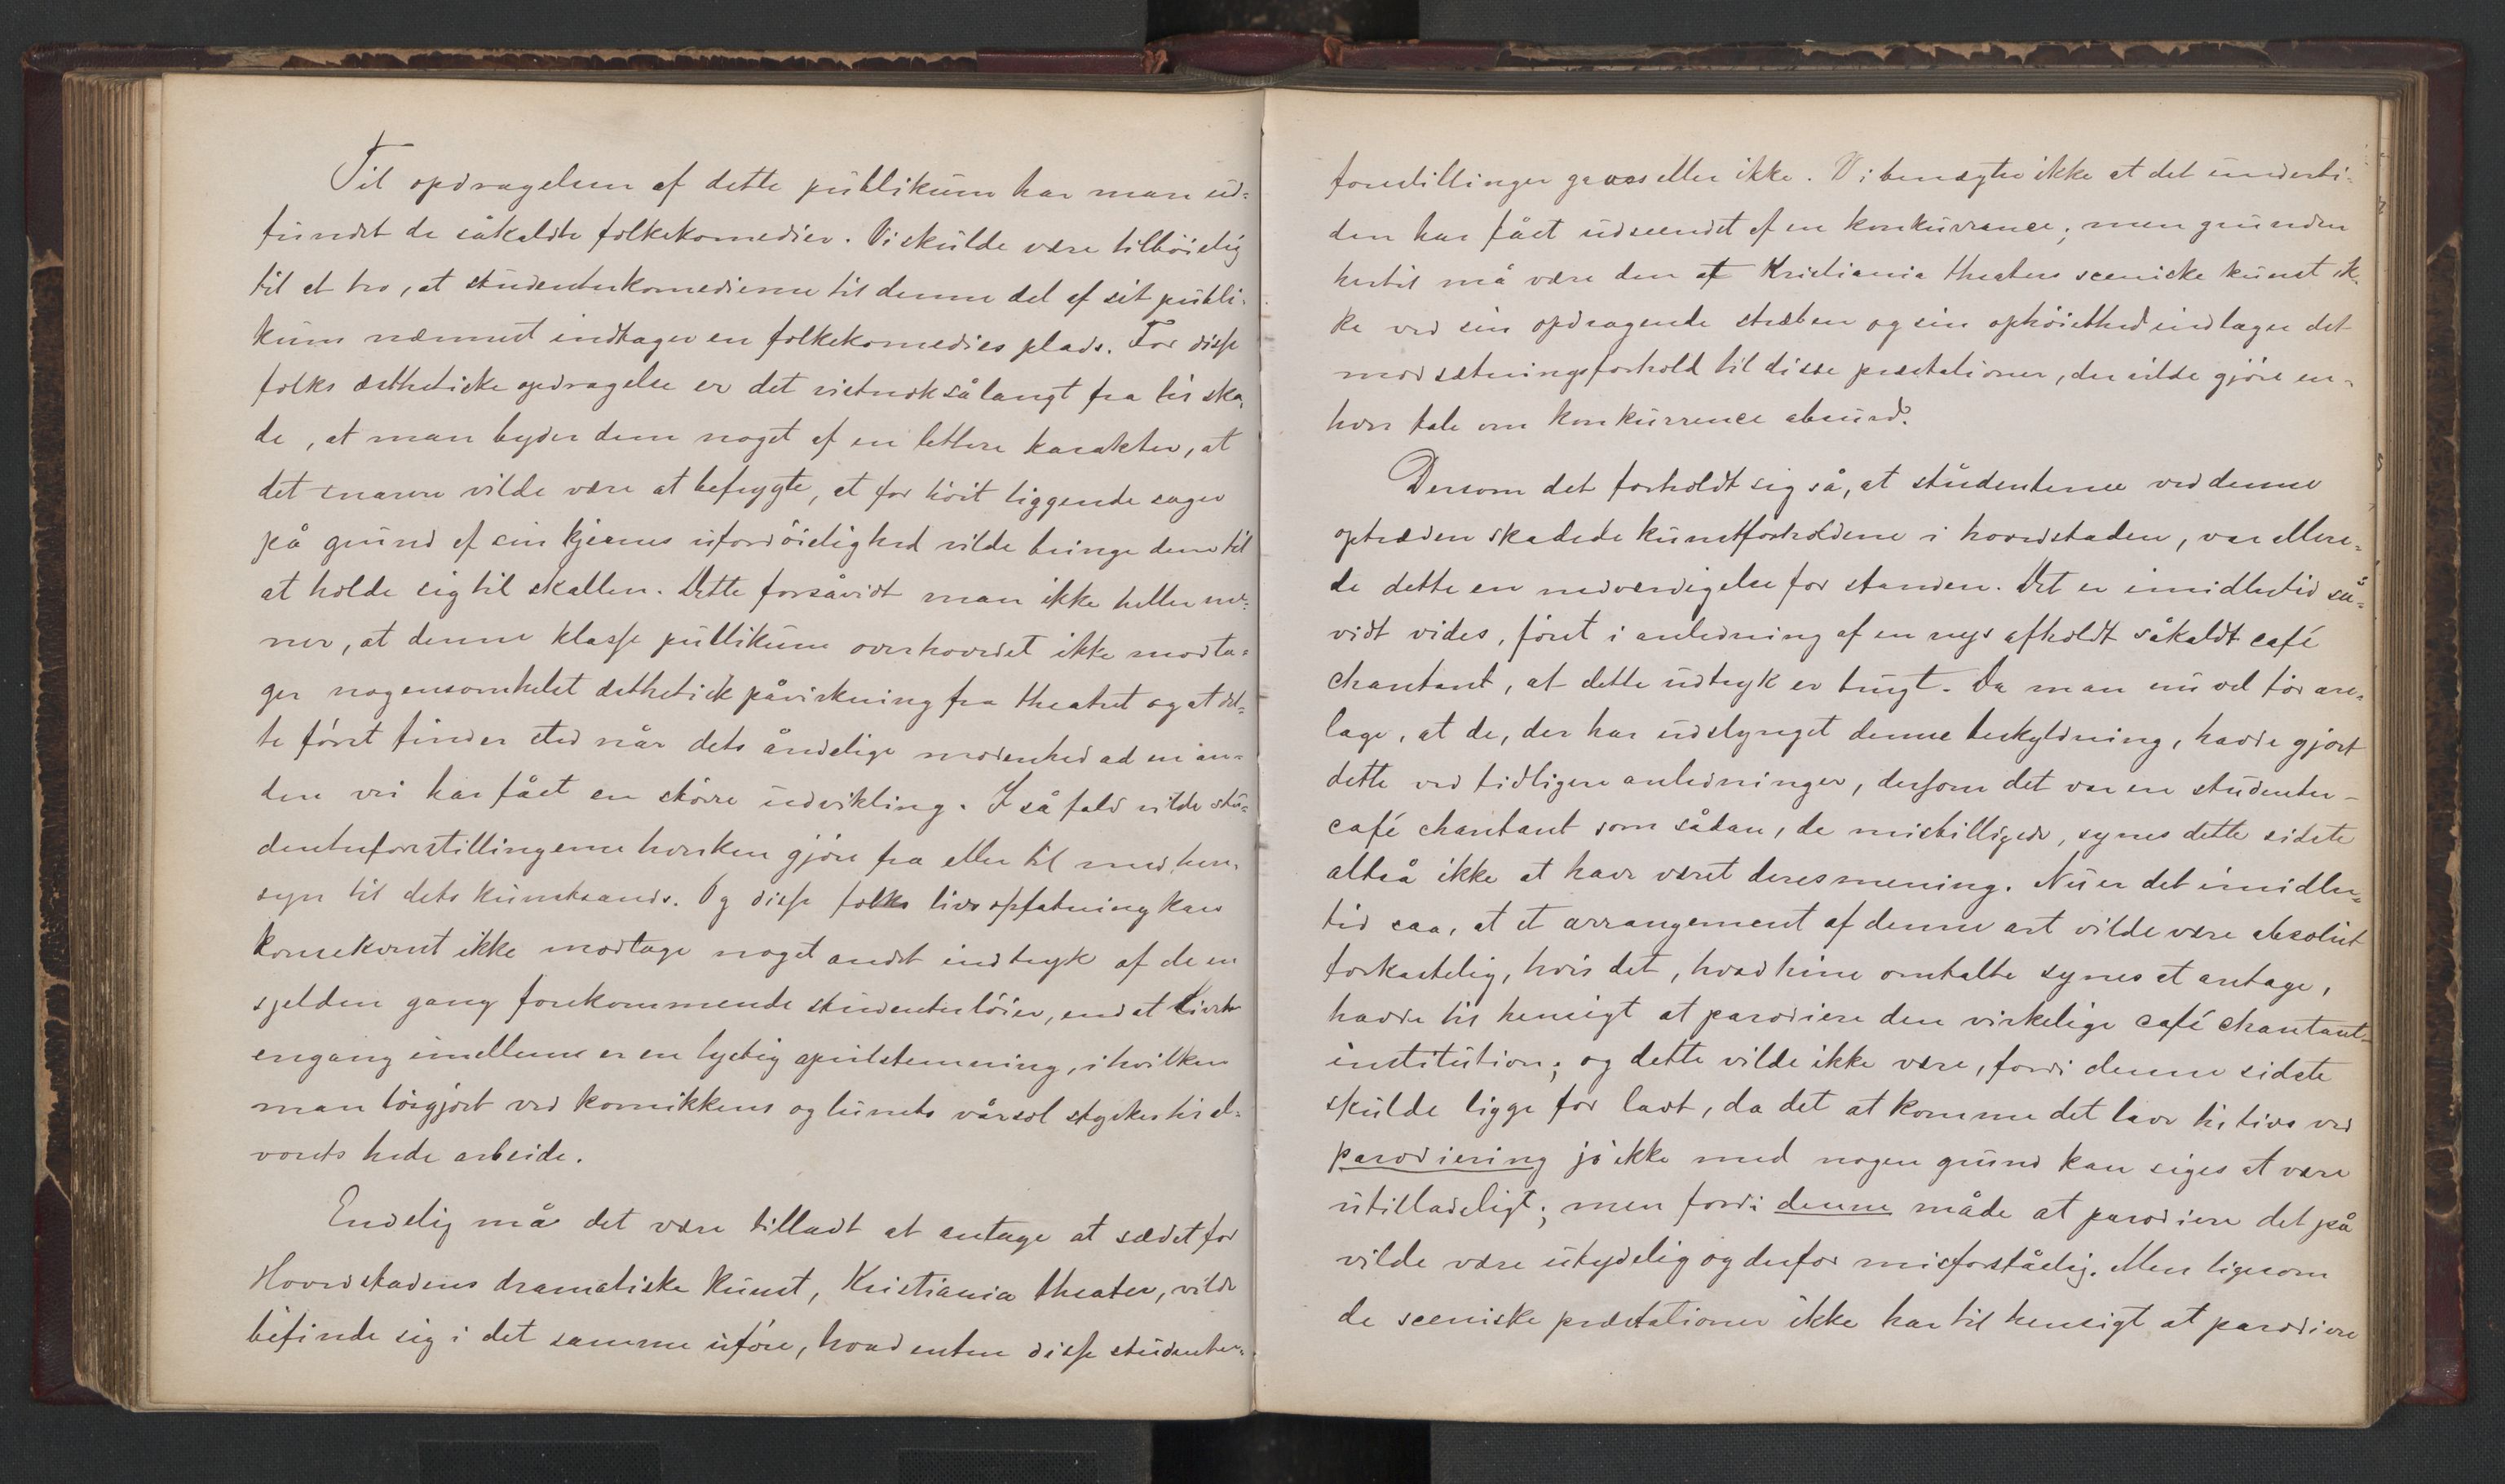 Til opdragelsen af dette publikum har man ud=
fundet de såkaldte folkekomedier. Vi skulde være tilböielig
til at tro, at studenterkomedierne til denne del af sit publi-
kum nærmest indtager en folkekomedies plads. For disse
folks æsthetiske opdragelse er det vistnok sålangt fra til ska-
de, at man byder dem noget af en lettere karakter, at
det snarere vilde være at befrygte, at for höit liggende sager
på grund af sin kjernes ufordöielighed vilde bringe dem til
at holde sig til skallen. Dette forsåvidt man ikke heller me-
ner, at denne klasse publikum overhovedet ikke modta=
ger nogensomhelst æsthetisk påvirkning fra theatret og at det=
te först finder sted når dets åndelige modenhed ad en an=
den vei har fået en större udvikling. I så fald vilde stu=
denterforestillingerne hverken gjöre fra eller til med hen-
syn til dets kunstsands. Og disse folks livsopfatning kan
konsekvent ikke modtage noget andet indtryk af de en
sjelden gang forekommende studenterlöier, end at livet
engang imellem er en lystig aprilstemning, i hvilken
man löigjort ved komikkens og lunets vårsol styrkes til al-
vorets hede arbeide.
Endelig må det være tilladt at antage at sædet for
Hovedstadens dramatiske kunst, Kristiania theater, vilde
befinde sig i det samme uföre, hvad enten disse studenter-
forestillinger gaves eller ikke. Vi benægter ikke at det underti-
den har fået udseendet af en konkurrance; men grunden
hertil må være den at Kristiania theaters sceniske kunst ik-
ke ved sin opdragende stræben og sin ophöiethed indtager det
modsætningsforhold til disse præstationer, der vilde gjöre en-
hver tale om konkurrence absurd.
Dersom det forholdt sig så, at studenterne ved denne
optræden skadede kunstforholdene i hovedstaden, var allere-
de dette en nedværdigelse for standen. Det er imidlertid så=
vidt vides, först i anledning af en nys afholdt såkaldt café
chantant, at dette udtryk er brugt. Da man nu vel tör an-
tage, at de, der har udslynget denne beskyldning, havde gjort
dette ved tidligere anledninger, dersom det var en studenter-
café chantant som sådan, de misbilligede, synes dette sidste
altså ikke at have været deres mening. Nu er det imidler=
tid saa, at et arrangement af denne art vilde være absolut
forkastelig, hvis det, hvad hine omtalte synes at antage,
havde til hensigt at parodiere den virkelige café chantant-
institution; og dette vilde ikke være, fordi denne sidste
skulde ligge for lavt, da det at komme det lave til livs ved
parodiering jo ikke med nogen grund kan siges at være
utilladeligt; men fordi denne måde at parodiere det på
vilde være utydelig og derfor misforståelig. Men ligesom
de sceniske præstationer ikke har til hensigt at parodiere